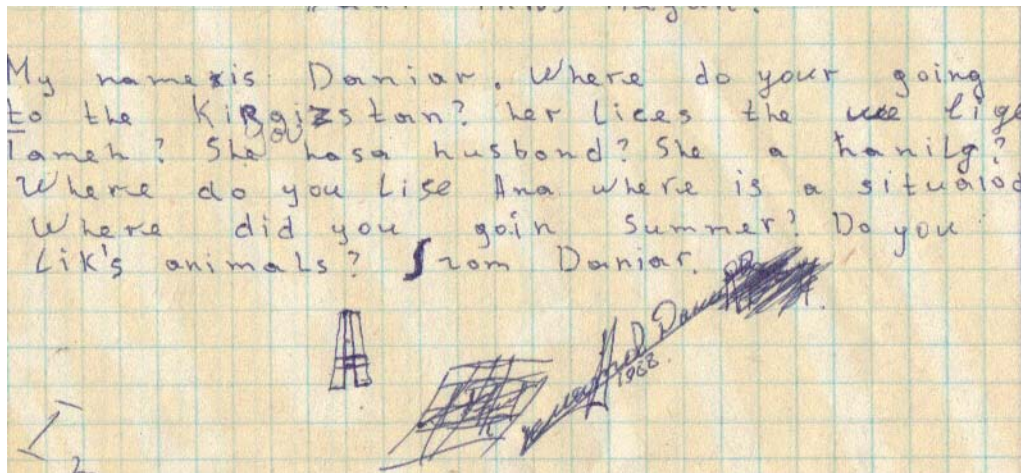 My name is Daniar. Where do your going
to the Kirgizstan? her lices the lige
you
She hasa husbond? She a hanilg?
Where do you Lise Ana where is a situalod
Where did you goin summer? Do you
Lik's animals? from Daniar.
1988